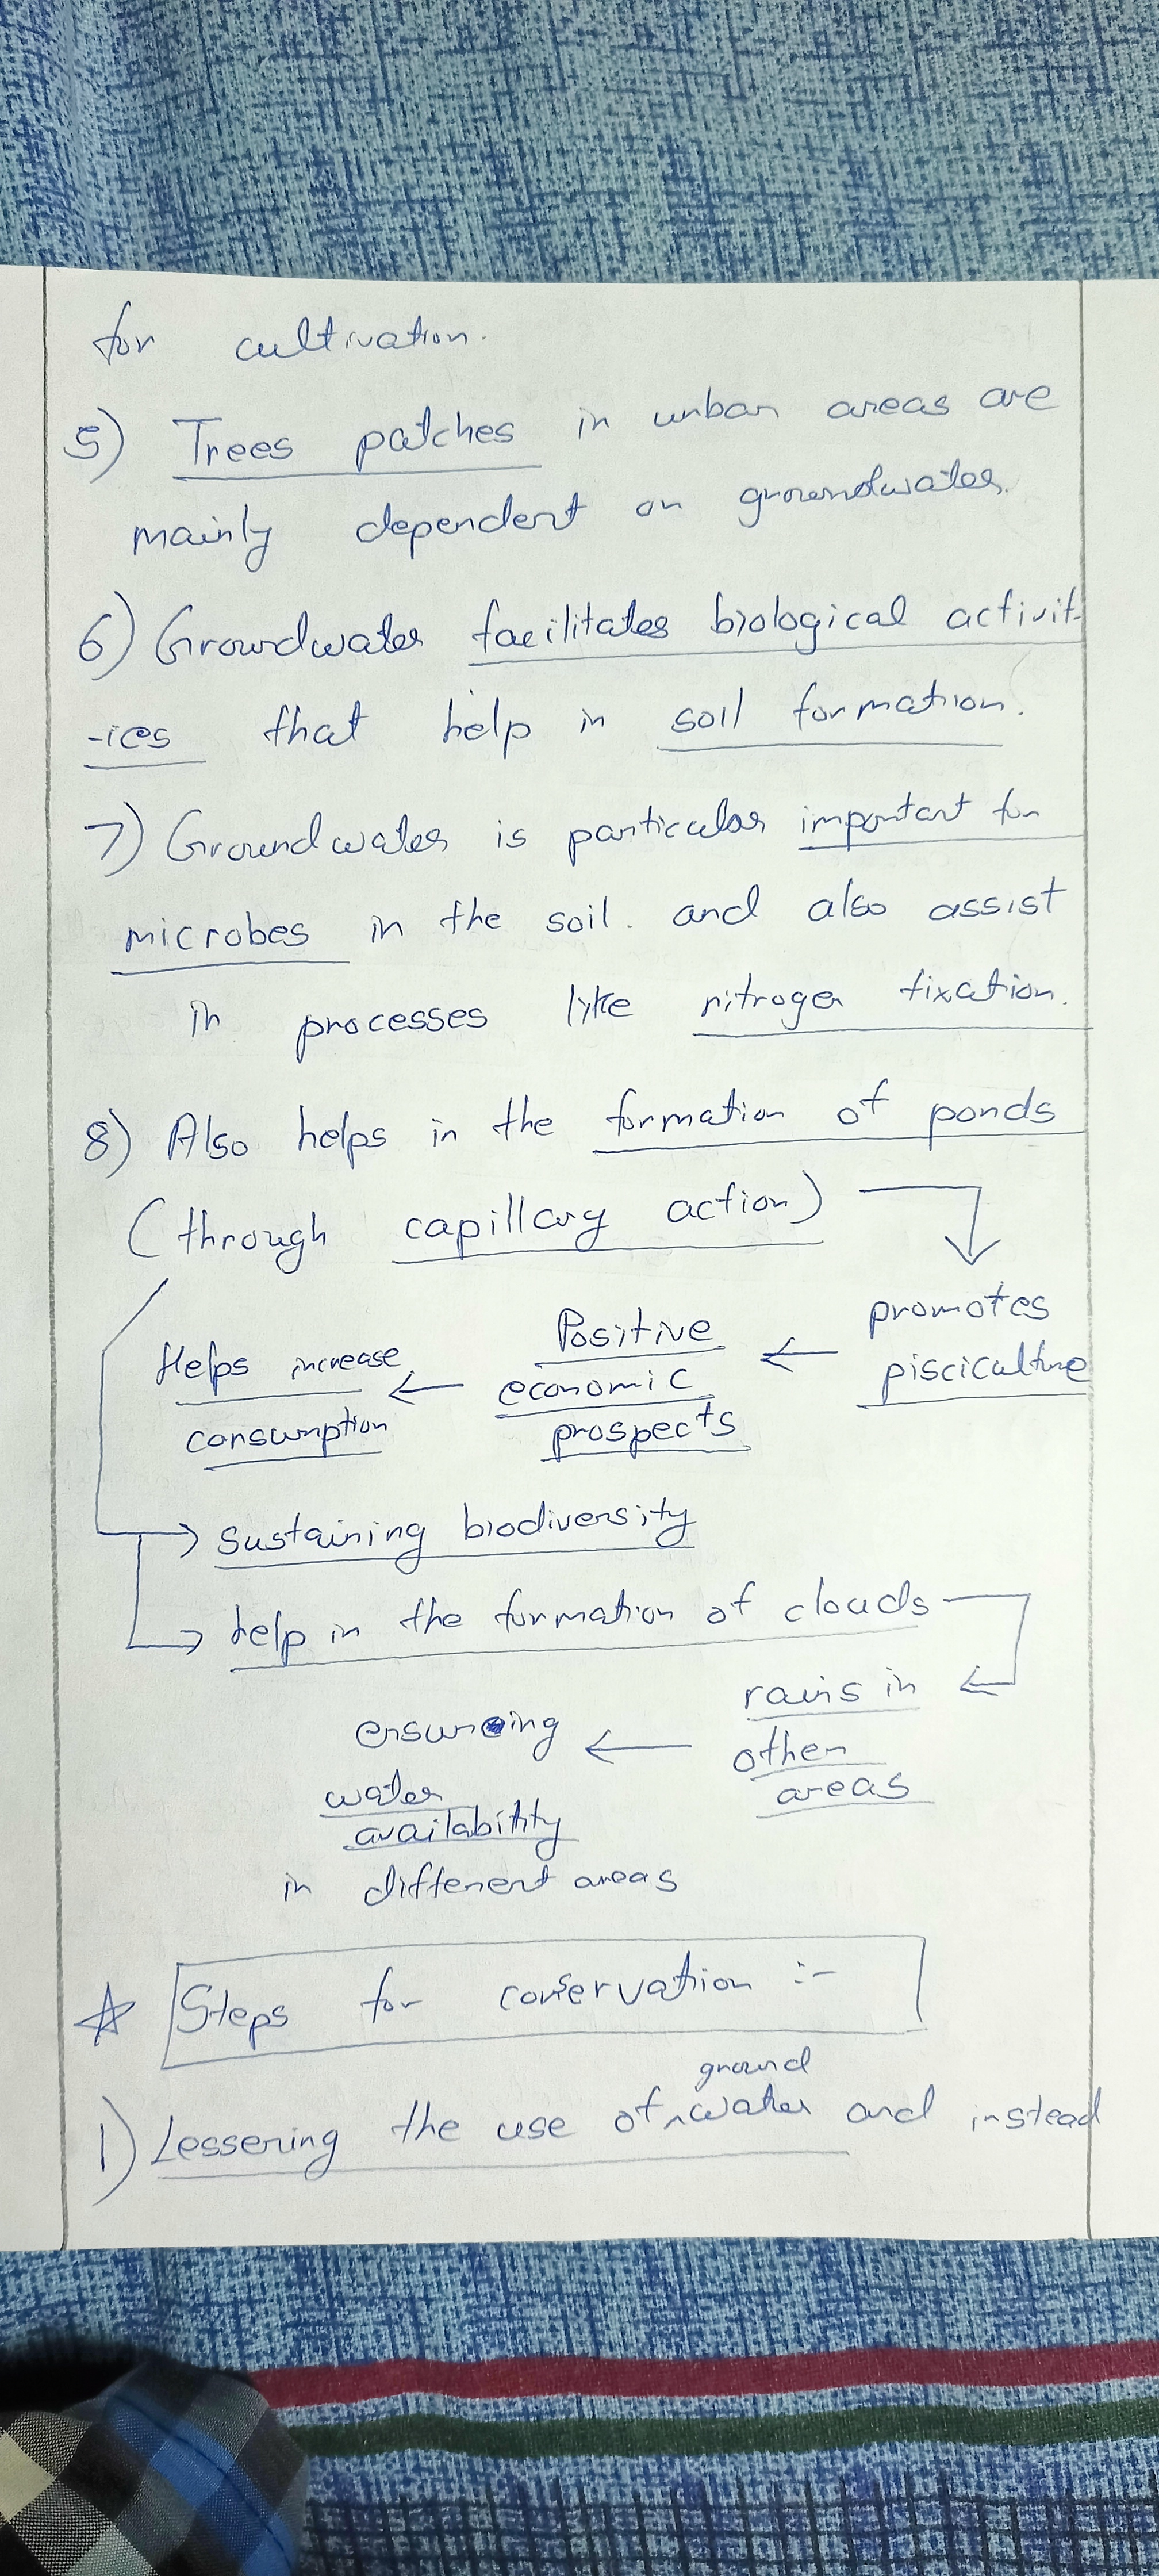 for cultivation.
5) Trees patches in urban areas are
mainly dependent on groundwater.
6) Groundwater facilitates biological activit-
-ies that help in soil formation.
7) Groundwater is particular important for
microbes in the soil. and also assist
in processes like nitrogen fixation.
8) Also helps in the formation of ponds
(through capillary action)
promotes
pisciculture
← Positive
economic
prospects
← Helps increase
consumption
→ sustaining biodiversity
→ help in the formation of clouds
← rains in
other
areas
← ensuring
water
availability
in different areas
☆ Steps for conservation :-
ground
1) Lessening the use of ^ water and instead